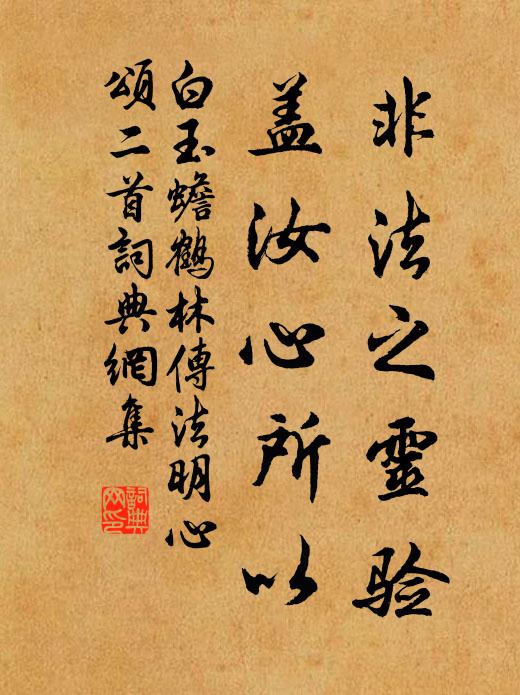 非法之靈验
盖汝心所以
白玉蟾鶴林傳法明心
頌二首詞典網集
詞典
网印